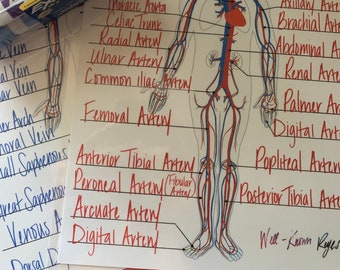 Thoracic Aorta
Celiac Trunk
Radial Artery
Ulnar Artery
Common iliac Artery
Femoral Artery
Anterior Tibial Artery
Peroneal Artery (Fibular Artery)
Arcuate Artery
Digital Artery
Axillary Artery
Brachial Artery
Abdominal
Renal Artery
Palmar
Digital Artery
Popliteal Artery
Posterior Tibial Artery
Well-Known
Vein
Vein
Vein
Vein
Arch
Vein
Small Saphenous
Great Saphenous
Venous
Dorsal